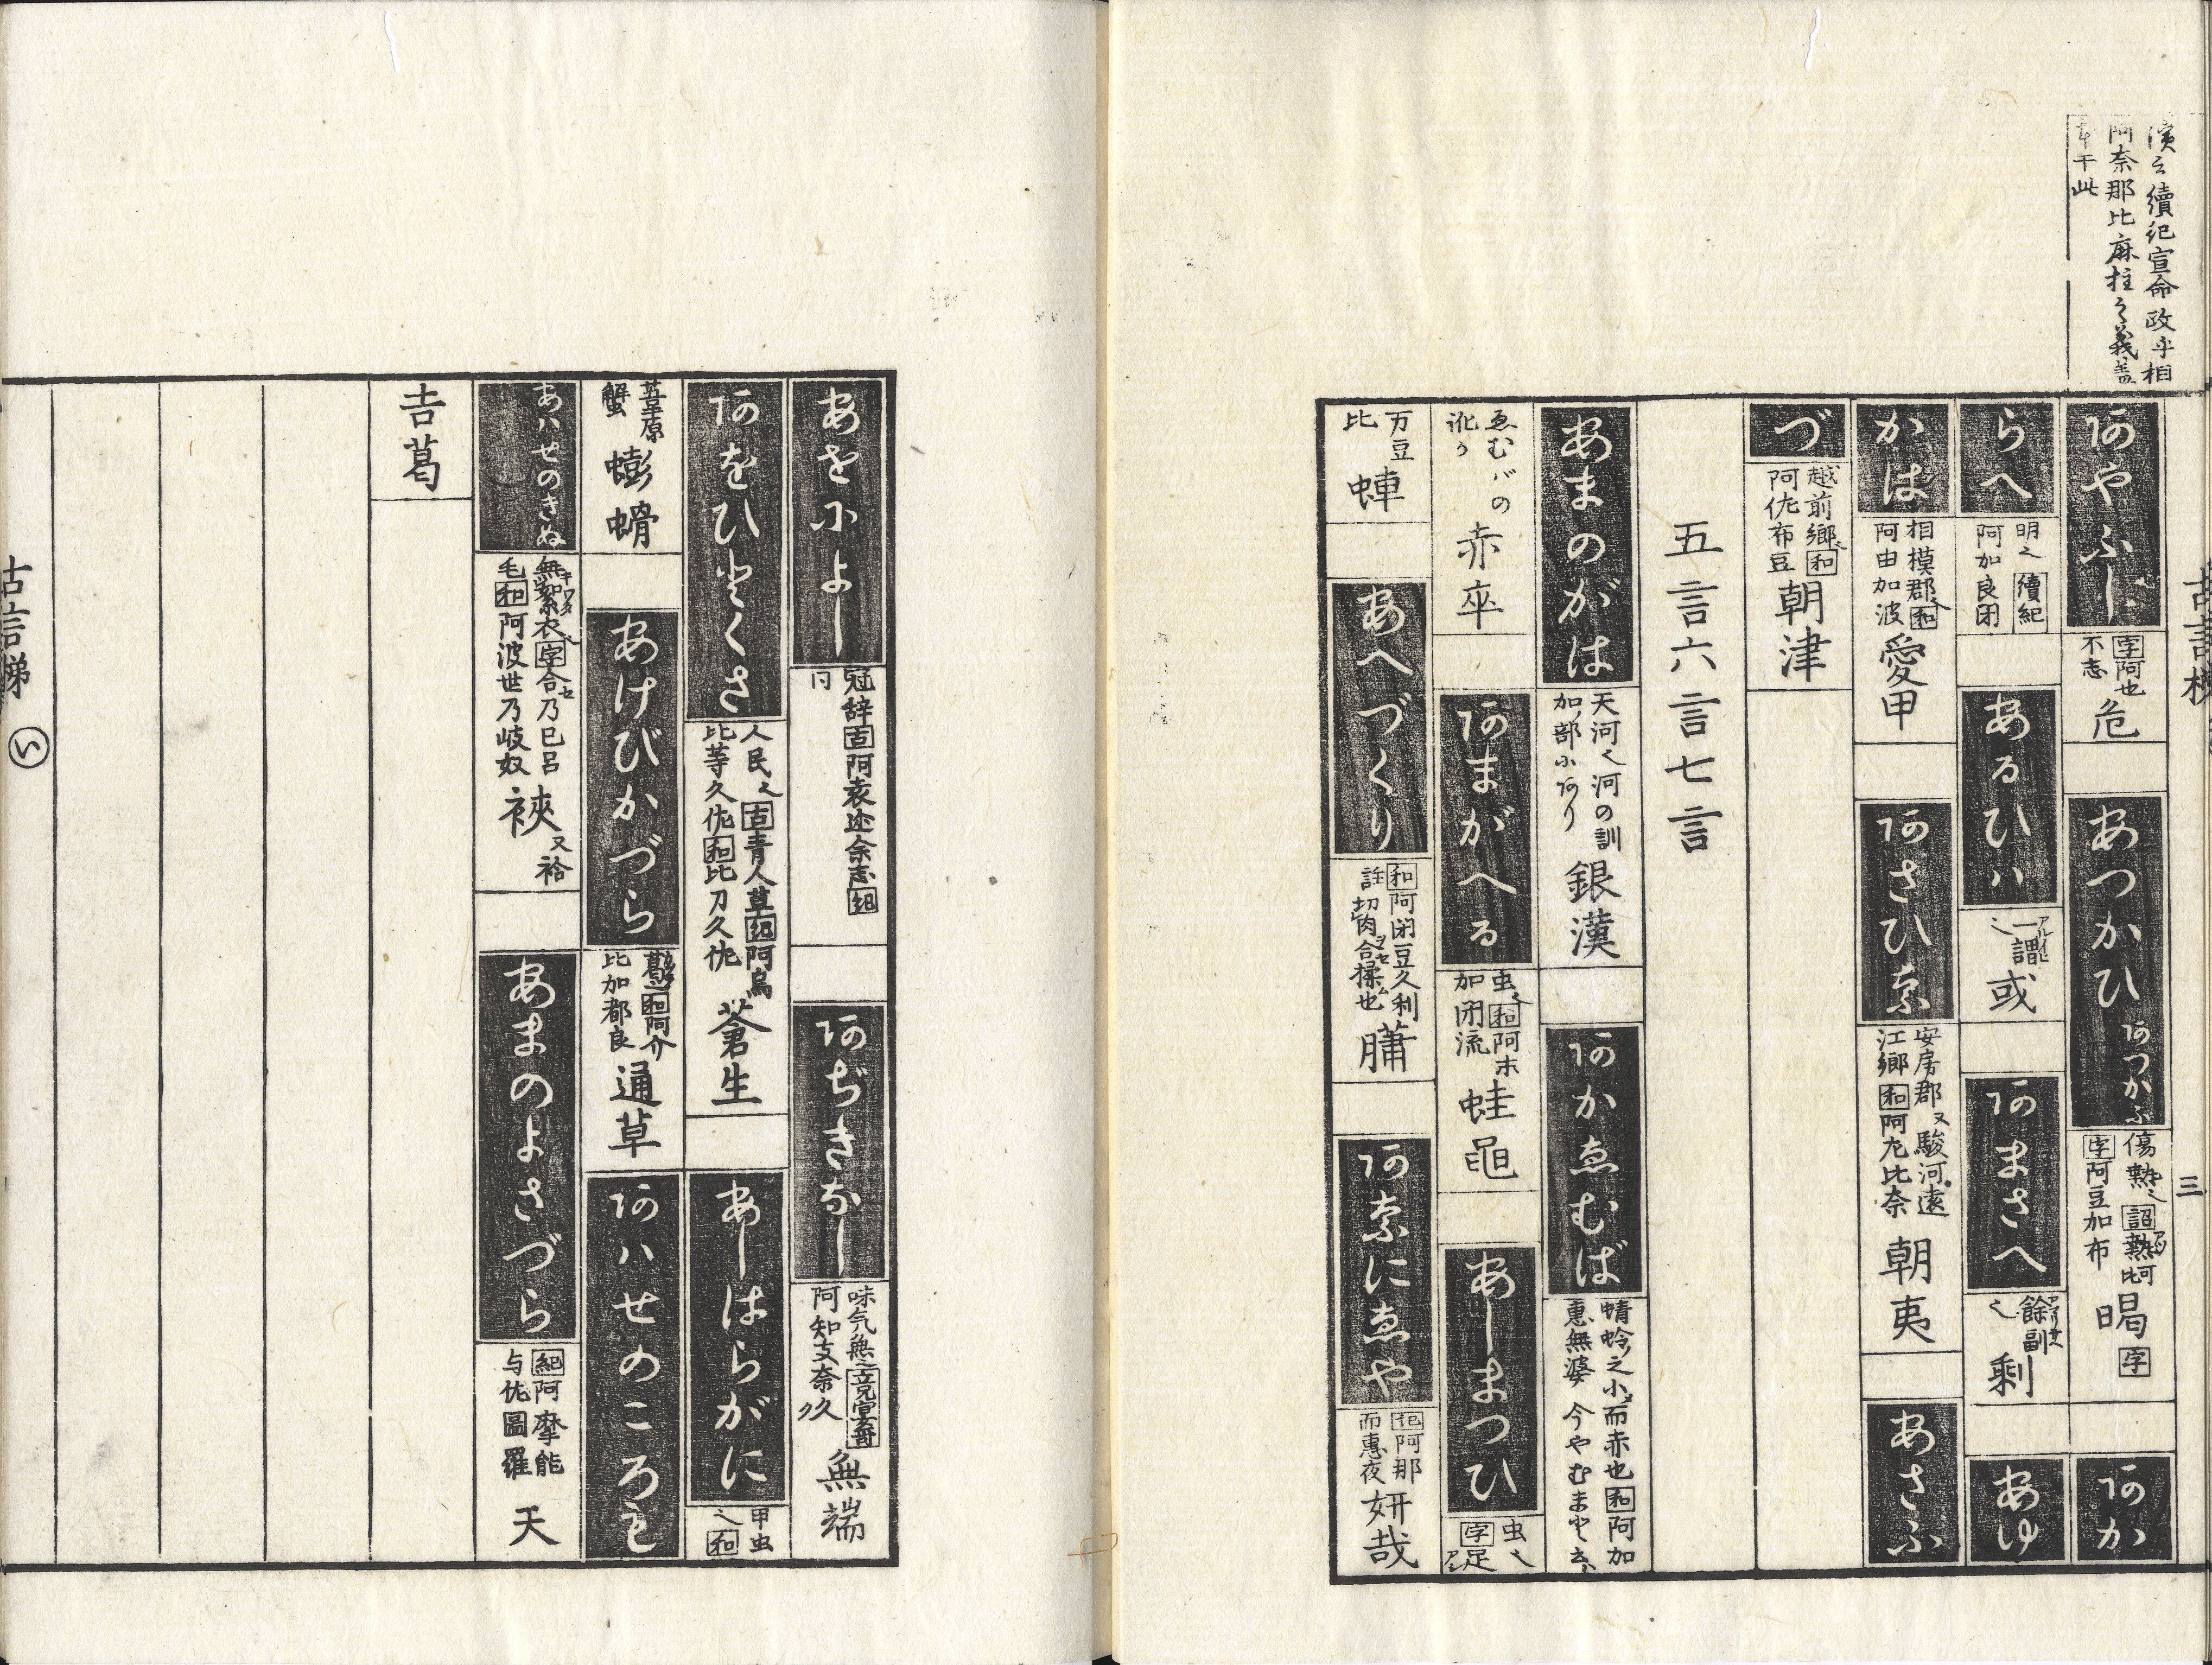 演之續紀宣命政乎相
阿奈那比麻柱之義盖
本于此
あやふし 字阿也不志 危 あつかひ あつかふ 傷熱之 詔熱阿比 字阿豆加布 暍 字 あか
らへ 明之 續紀 阿加良閇 あるひハ 一謂之 或 あまさへ 餘副之 剰 あゆ
かは 相模郡之 和 阿由加波 愛甲 あさひな 安房郡又駿河遠江郷 和 阿左比奈 朝夷 あさふ
づ 越前郷之 和 阿佐布豆 朝津
五言六言七言
あまのがは 天河之河の訓加部にあり 銀漢 あかゑむば 蜻蛉之小而赤也 和 阿加惠無婆 今やむまと云
ゑむバの訛か 赤卒 あまがへる 虫之 和 阿末加閇流 蛙黽 あしまつひ 虫之 字足
万豆比 蟀 あへづくり 和 阿閇豆久利 註切肉合揉也 膅 あなにゑや 紀 阿那而惠夜 妍哉
三
あをによし 冠辞 古 阿袁迩余志 紀 同 あぢきなし 味気無之 童蒙 阿知支奈久 無端
あをひとくさ 人民之 古 青人草 紀 阿烏比等久佐 和 比刀久佐 蒼生 あしはらがに 甲虫之 和
葦原蟹 蟛螖 あけびかづら 葛之 和 阿介比加都良 通草 あハせのころも
あハせのきぬ 無絮衣之 字 合乃己呂毛 和 阿波世乃岐奴 裌 又袷 あまのよさづら 紀 阿摩能与佐圖羅 天
吉葛
古言梯 い